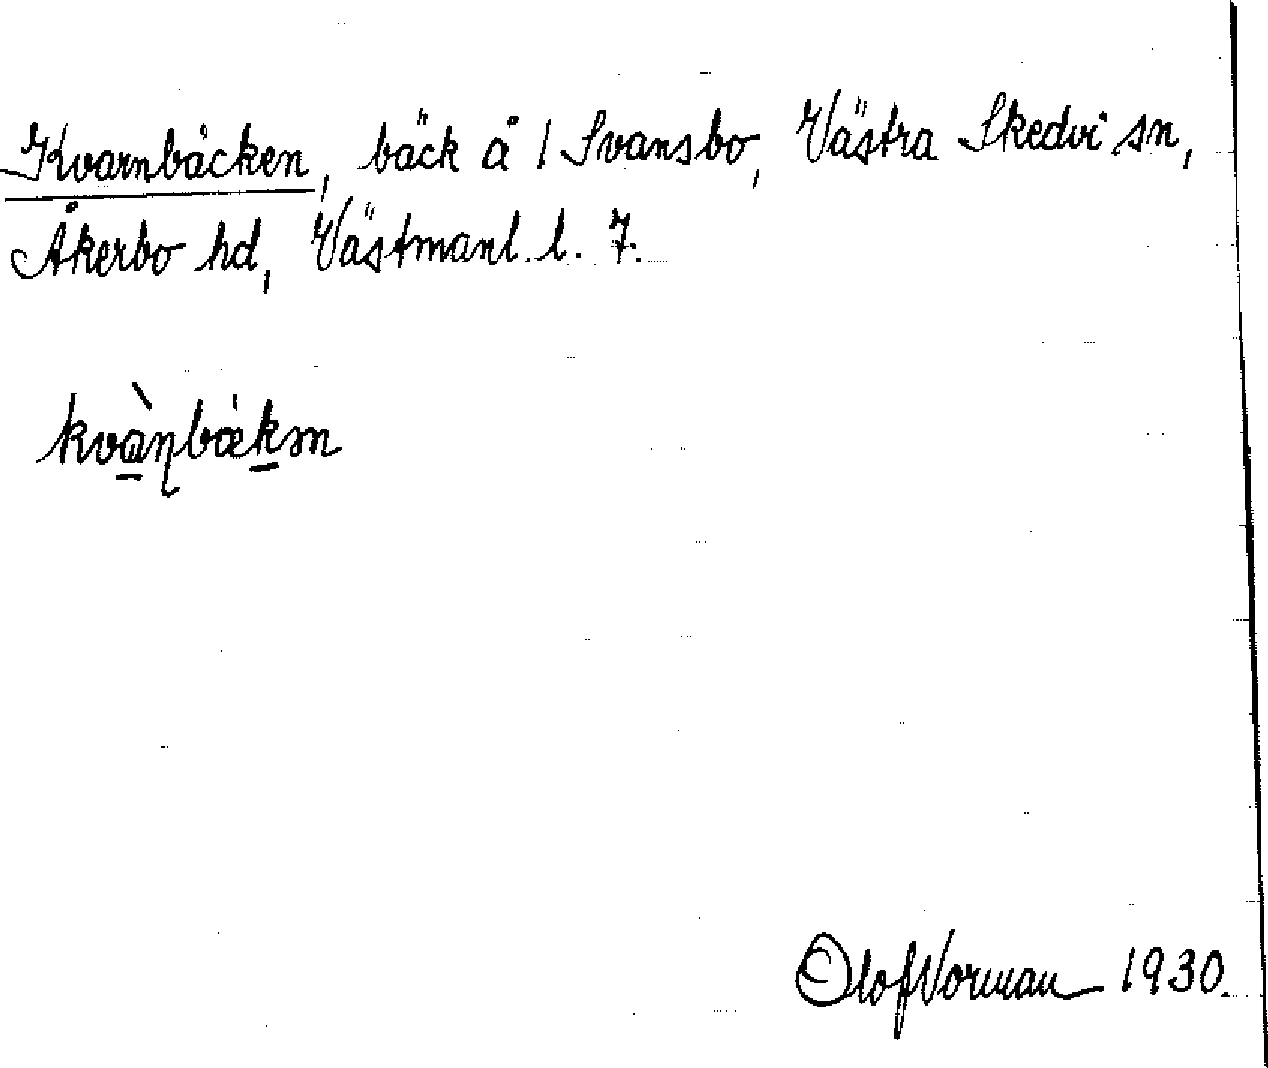 Kvarnbäcken, bäck å 1 Svansbo, Västra Skedvi sn,
Åkerbo hd, Västmanl. l. 7.
kvàɳbækm
Olof Norman 1930.